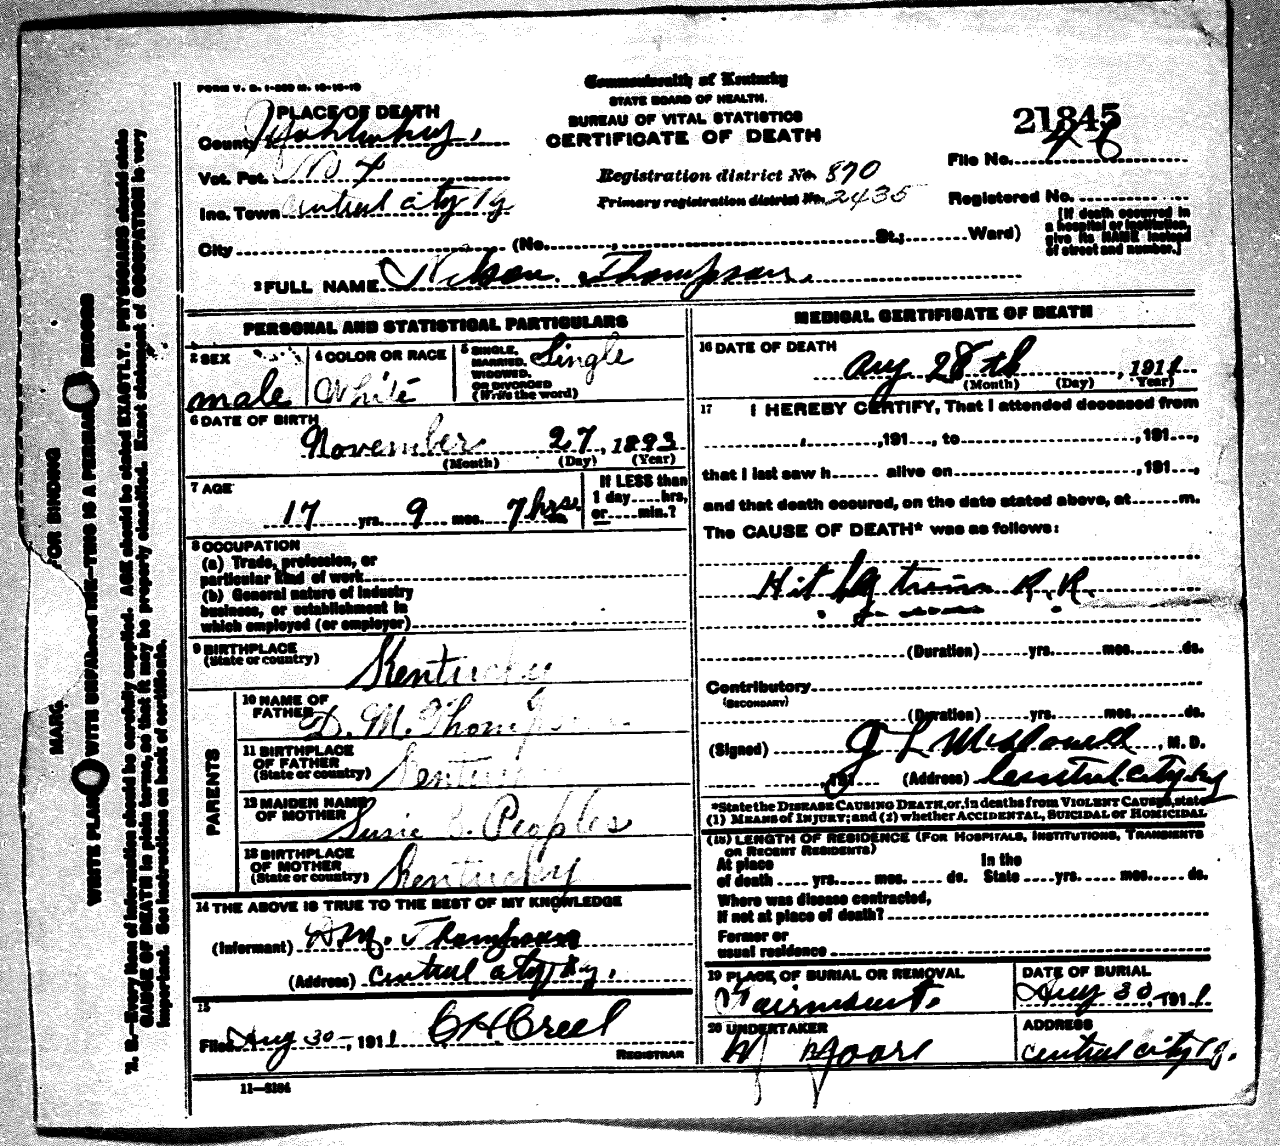 FORM V. S. 1-500 M. 12-16-10
Commonwealth of Kentucky
STATE BOARD OF HEALTH.
BUREAU OF VITAL STATISTICS
CERTIFICATE OF DEATH
21845
PLACE OF DEATH
County Mohlenburg,
Vot. Pct. No 4
Inc. Town Central city Ky
City (No. , St.; Ward)
Registration district No. 870
Primary registration district No. 2435
File No. 46
Registered No.
[If death occurred in
a hospital or institution,
give its NAME instead
of street and number.]
2 FULL NAME Nelson Thompson.
PERSONAL AND STATISTICAL PARTICULARS
3 SEX
male
4 COLOR OR RACE
White
5 SINGLE,
MARRIED,
WIDOWED,
OR DIVORCED
(Write the word)
Single
6 DATE OF BIRTH
November 27, 1893
(Month) (Day) (Year)
7 AGE
17 yrs. 9 mos. 7 hrs
If LESS than
1 day hrs,
or min.?
8 OCCUPATION
(a) Trade, profession, or
particular kind of work
(b) General nature of industry
business, or establishment in
which employed (or employer)
9 BIRTHPLACE
(State or country)
Kentucky
PARENTS
10 NAME OF
FATHER
D. M. Thompson
11 BIRTHPLACE
OF FATHER
(State or country)
Kentucky
12 MAIDEN NAME
OF MOTHER
Susie Peoples
13 BIRTHPLACE
OF MOTHER
(State or country)
Kentucky
14 THE ABOVE IS TRUE TO THE BEST OF MY KNOWLEDGE
(Informant) D. M. Thompson
(Address) Central city, Ky.
15
Filed Aug 30, 1911 C H Creel
REGISTRAR
11-3184
MEDICAL CERTIFICATE OF DEATH
16 DATE OF DEATH
Aug 28th, 1911
(Month) (Day) (Year)
17 I HEREBY CERTIFY, That I attended deceased from
, 191 , to , 191 ,
that I last saw h alive on , 191 ,
and that death occured, on the date stated above, at m.
The CAUSE OF DEATH* was as follows:
Hit by train R.R.
(Duration) yrs. mos. ds.
Contributory
(SECONDARY)
(Duration) yrs. mos. ds.
(Signed) J L McDowell, M. D.
191 (Address) Central city Ky
*State the DISEASE CAUSING DEATH, or, in deaths from VIOLENT CAUSES, state
(1) MEANS OF INJURY; and (2) whether ACCIDENTAL, SUICIDAL or HOMICIDAL
(18) LENGTH OF RESIDENCE (FOR HOSPITALS, INSTITUTIONS, TRANSIENTS
OR RECENT RESIDENTS)
At place In the
of death yrs. mos. ds. State yrs. mos. ds.
Where was disease contracted,
if not at place of death?
Former or
usual residence
19 PLACE OF BURIAL OR REMOVAL
Fairmount.
DATE OF BURIAL
Aug 30 1911
20 UNDERTAKER
ADDRESS
Central city Ky.
MARG FOR BINDING
WRITE PLAINLY WITH UNFADING INK—THIS IS A PERMANENT RECORD
N. B.—Every item of information should be carefully supplied. AGE should be stated EXACTLY. PHYSICIANS should state
CAUSE OF DEATH in plain terms, so that it may be properly classified. Exact statement of OCCUPATION is very
important. See instructions on back of certificate.